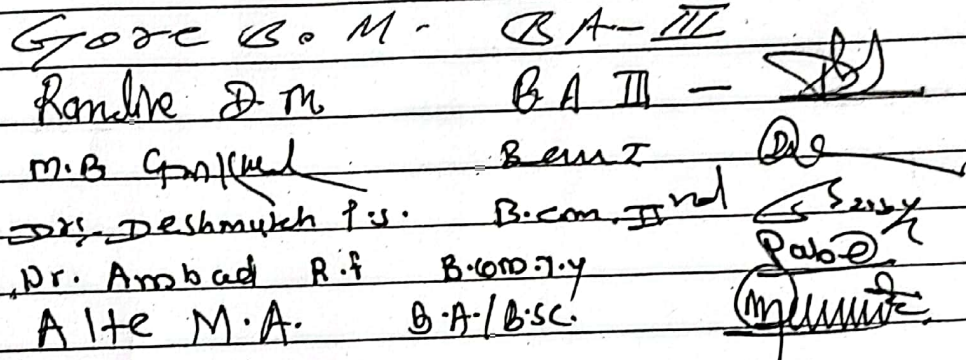 Gore B. M. - BA-III
Randive D. M BA III -
M.B Gaikwad B.com I
Drs. Deshmukh P.S. B.com. IInd
Dr. Ambad R.F B.com. I.Y
Alte M.A. B.A./B.SC.